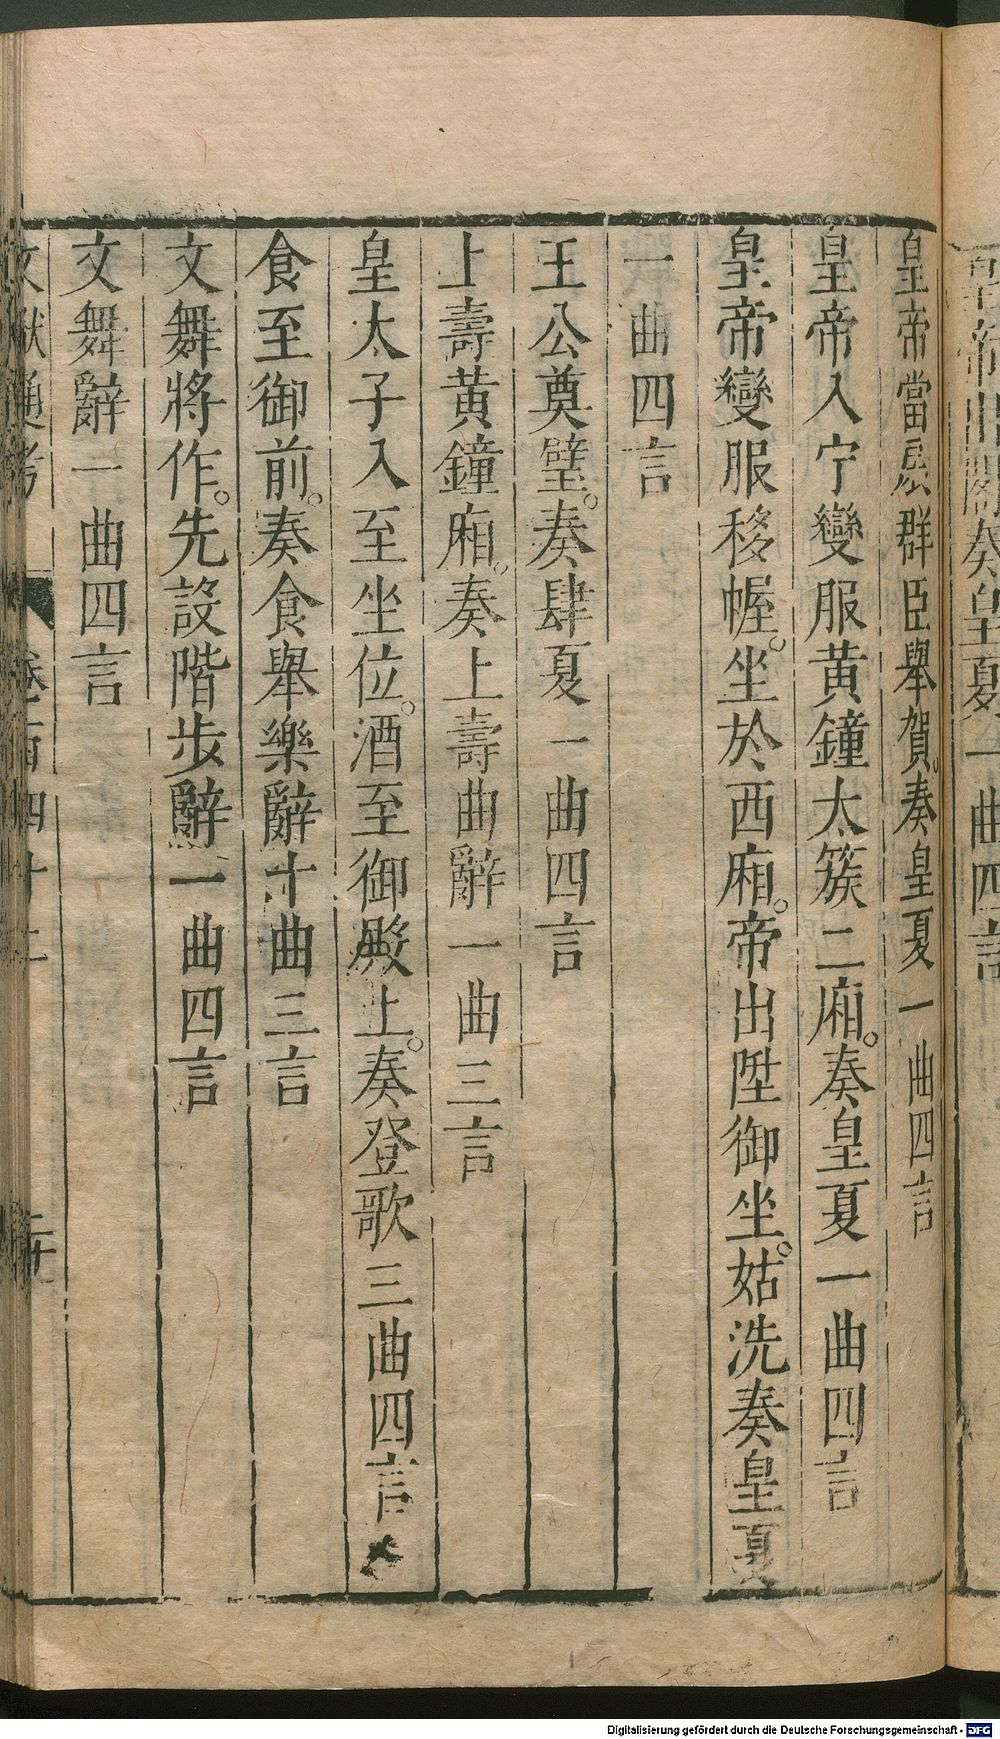 皇帝出閤奏皇夏一曲四言
皇帝當扆群臣舉賀。奏皇夏一曲四言
皇帝入宁變服黃鐘太簇二廂。奏皇夏一曲四言
皇帝變服移幄。坐於西廂。帝出陞御坐。姑洗奏皇夏
一曲四言
王公奠璧。奏肆夏一曲四言
上壽黃鐘廂。奏上壽曲辭一曲三言
皇太子入至坐位。酒至御殿上。奏登歌三曲四言
食至御前。奏食舉樂辭十曲三言
文舞將作。先設階步辭一曲四言
文舞辭一曲四言
文獻通考 卷一百四十二
Digitalisierung gefördert durch die Deutsche Forschungsgemeinschaft - DFG